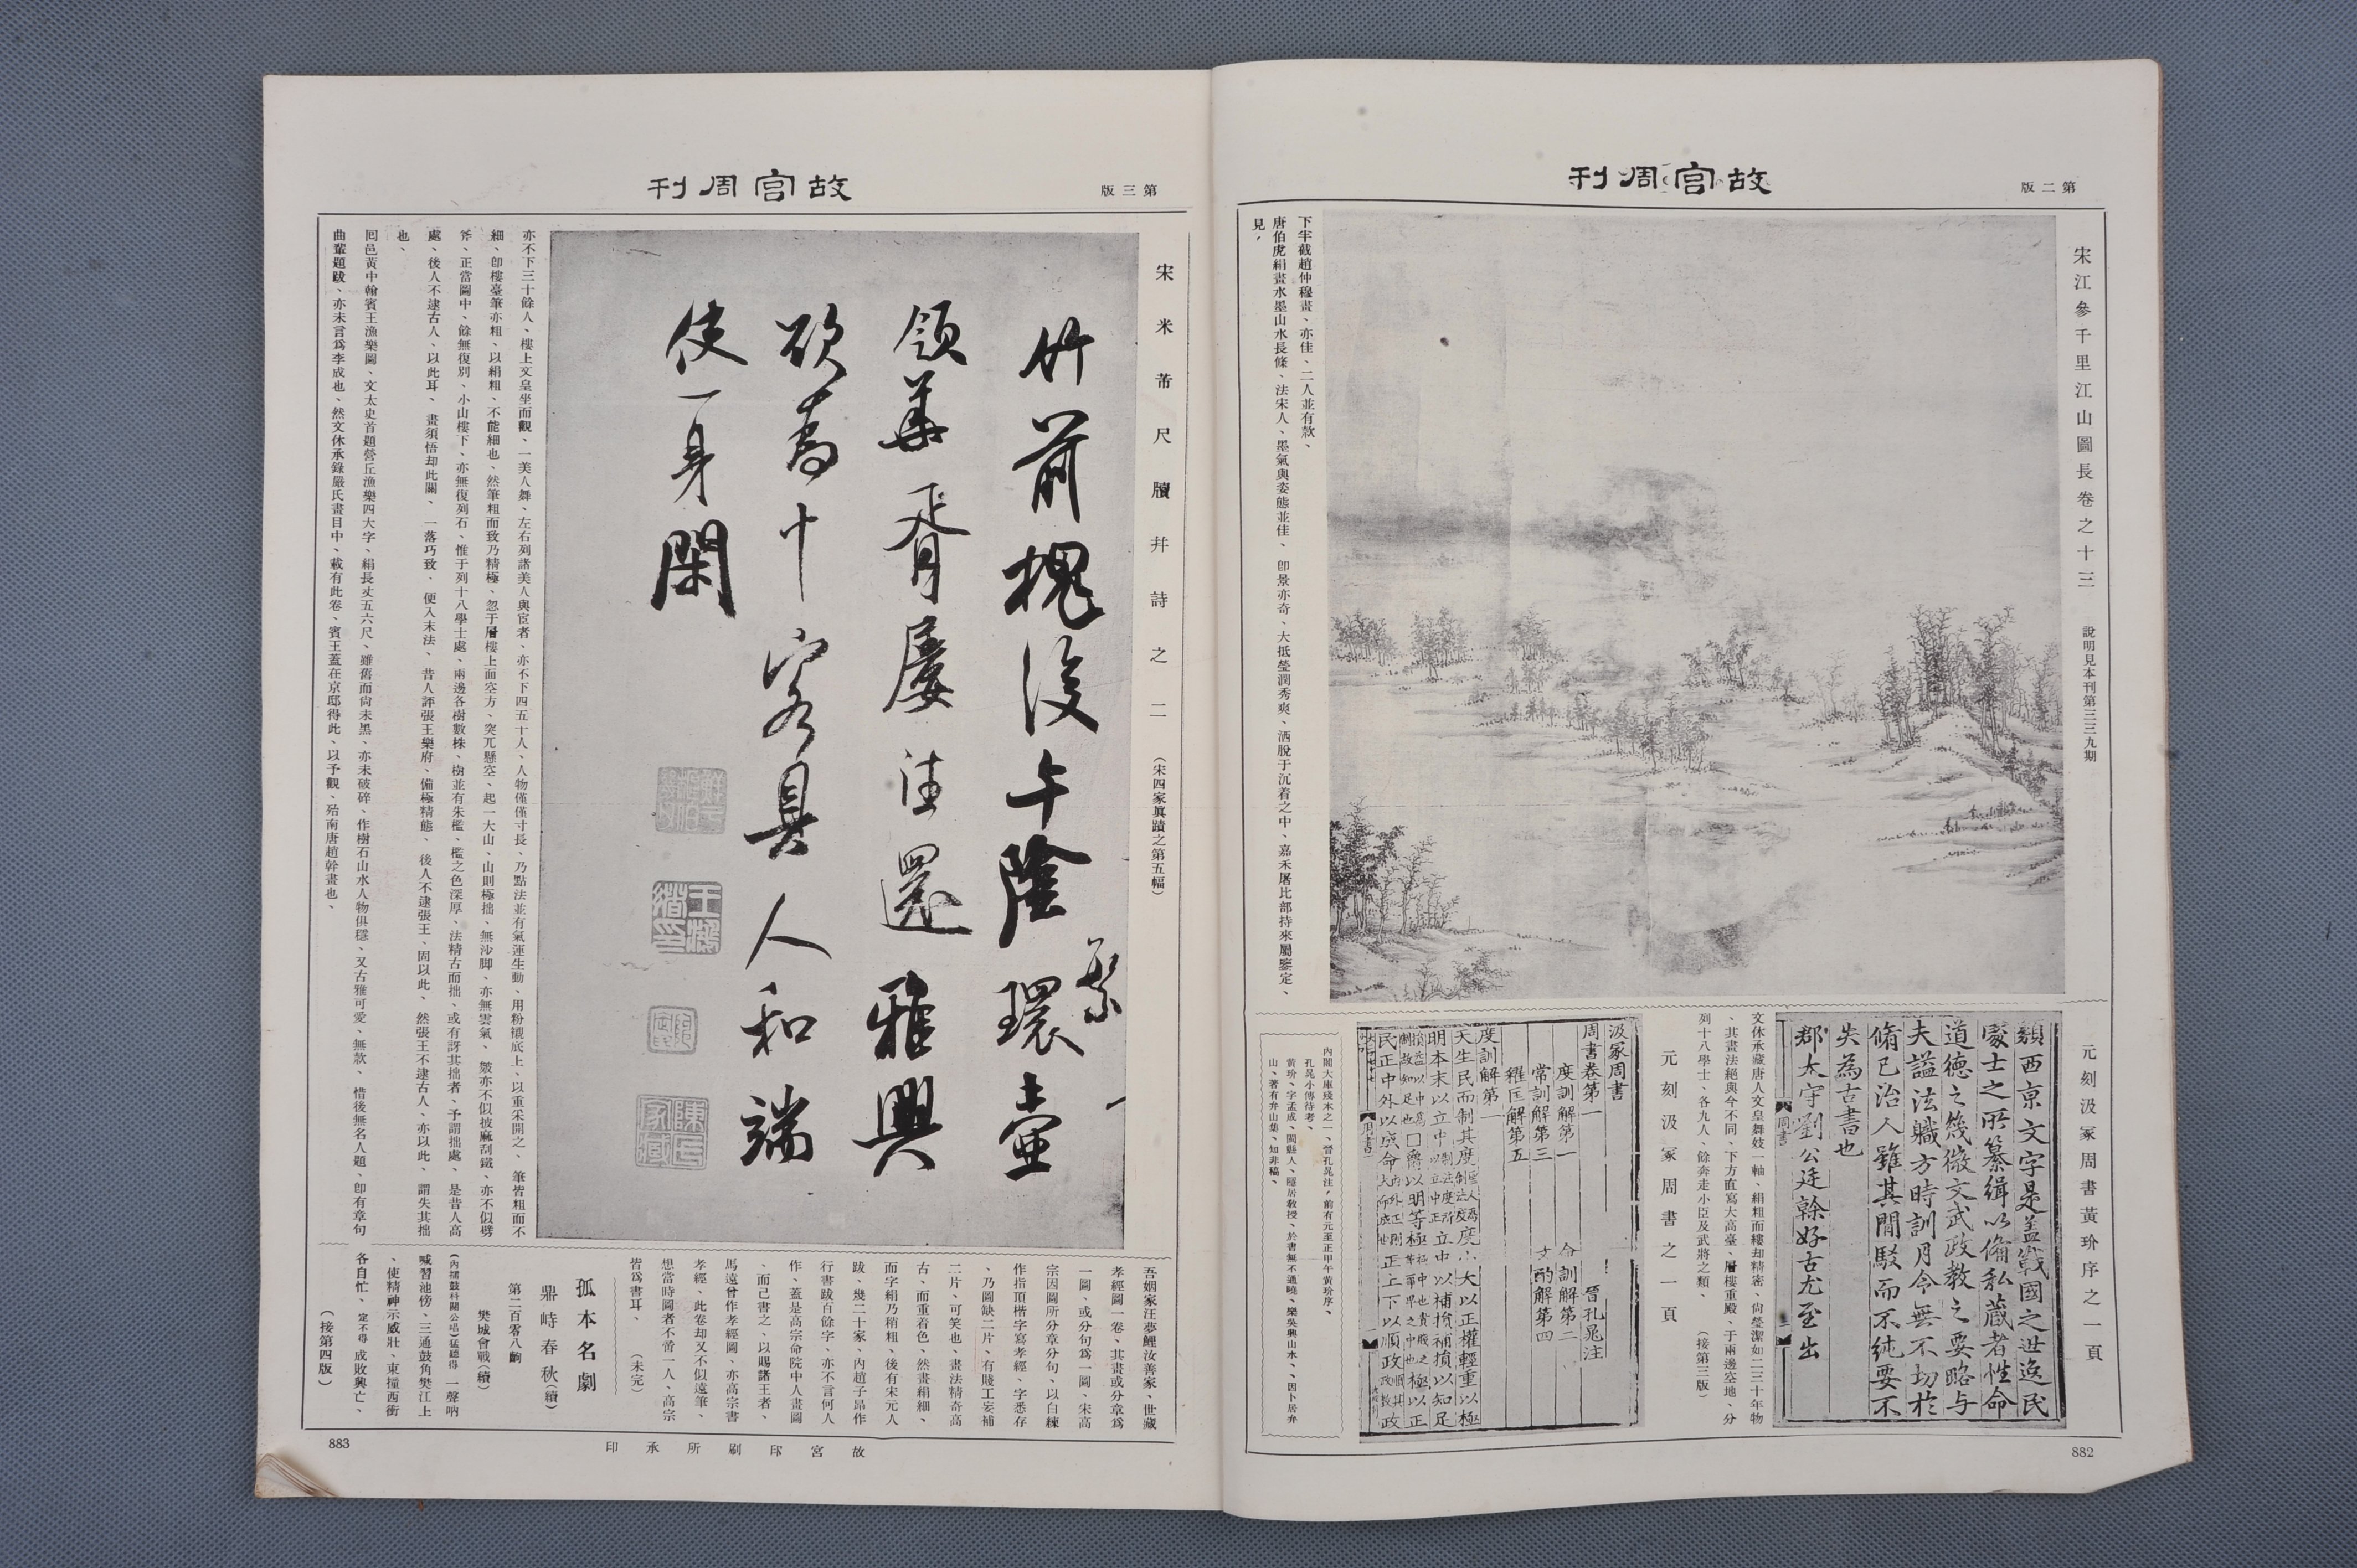 故宮周刊
第二版
宋江參千里江山圖長卷之十三
說明見本刊第三三九期
下半截趙仲穆畫、亦佳、二人並有款、
唐伯虎絹畫水墨山水長條、法宋人、墨氣與姿態並佳、卽景亦奇、大抵瑩潤秀爽、洒脫于沉着之中、嘉禾屠比部持來屬鑒定、
見、
元刻汲冢周書黃玠序之一頁
類西京文字是盖戰國之世逸民
處士之所纂緝以備私藏者性命
道德之幾微文武政教之要略与
夫謚法職方時訓月令無不切於
脩己治人雖其閒駁而不純要不
失為古書也
郡太守劉公廷榦好古尤至出
文休承藏唐人文皇舞妓一軸、絹粗而縷却精密、尙瑩潔如二三十年物
、其畫法絕與今不同、下方直寫大高臺、層樓重殿、于兩邊空地、分
列十八學士、各九人、餘奔走小臣及武將之類、
(接第三版)
元刻汲冢周書之一頁
汲冢周書
周書卷第一
晉孔晁注
度訓解第一
命訓解第二
常訓解第三
文酌解第四
糴匡解第五
度訓解第一
天生民而制其度
度小大以正權輕重以極
明本末以立中
立中以補損補損以知足
以明等極
以正
民正中外以成命
正上下以順政
內閣大庫殘本之一、晉孔晁注、前有元至正甲午黃玠序、
孔晁小傳待考、
黃玠、字孟成、閩縣人、隱居敎授、於書無不通曉、樂吳興山水、因卜居弁
山、著有弁山集、知非稿、
882
故宮周刊
第三版
宋米芾尺牘幷詩之二
(宋四家眞蹟之第五幅)
竹前槐後午陰繁環壺
領華胥屢往還雅興
欲為十客具人和端
使一身閑
王鴻緒印
陳氏家藏
亦不下三十餘人、樓上文皇坐而觀、一美人舞、左右列諸美人與宦者、亦不下四五十人、人物僅僅寸長、乃點法並有氣運生動、用粉襯底上、以重采開之、筆皆粗而不
細、卽樓臺筆亦粗、以絹粗、不能細也、然筆粗而致乃精極、忽于層樓上面空方、突兀懸空、起一大山、山則極拙、無沙脚、亦無雲氣、皴亦不似披麻刮鐵、亦不似劈
斧、正當圖中、餘無復別、小山樓下、亦無復列石、惟于列十八學士處、兩邊各樹數株、樹並有朱檻、檻之色深厚、法精古而拙、或有訝其拙者、予謂拙處、是昔人高
處、後人不逮古人、以此耳、畫須悟却此關、一落巧致、便入末法、昔人評張王樂府、備極精態、後人不逮張王、固以此、然張王不逮古人、亦以此、謂失其拙
也、
囘邑黃中翰賓王漁樂圖、文太史首題營丘漁樂四大字、絹長丈五六尺、雖舊而尙未黑、亦未破碎、作樹石山水人物俱穩、又古雅可愛、無款、惜後無名人題、卽有章句
曲輩題跋、亦未言爲李成也、然文休承錄嚴氏畫目中、載有此卷、賓王蓋在京邸得此、以予觀、殆南唐趙幹畫也、
吾姻家汪夢鯉汝善家、世藏
孝經圖一卷、其畫或分章爲
一圖、或分句爲一圖、宋高
宗因圖所分章分句、以白練
作指頂楷字寫孝經、字悉存
、乃圖缺二片、有賤工妄補
二片、可笑也、畫法精奇高
古、而重着色、然畫絹細、
而字絹乃稍粗、後有宋元人
跋、幾二十家、內趙子昂作
行書跋百餘字、亦不言何人
作、蓋是高宗命院中人畫圖
、而己書之、以賜諸王者、
馬遠曾作孝經圖、亦高宗書
孝經、此卷却又不似遠筆、
想當時圖者不啻一人、高宗
皆爲書耳、
(未完)
孤本名劇
鼎峙春秋(續)
第二百零八齣
樊城會戰(續)
(內擂鼓科關公唱)猛聽得一聲吶
喊習池傍、三通鼓角樊江上
、使精神示威壯、東撞西衝
各自忙、定不得成敗興亡、
(接第四版)
故宮印刷所承印
883